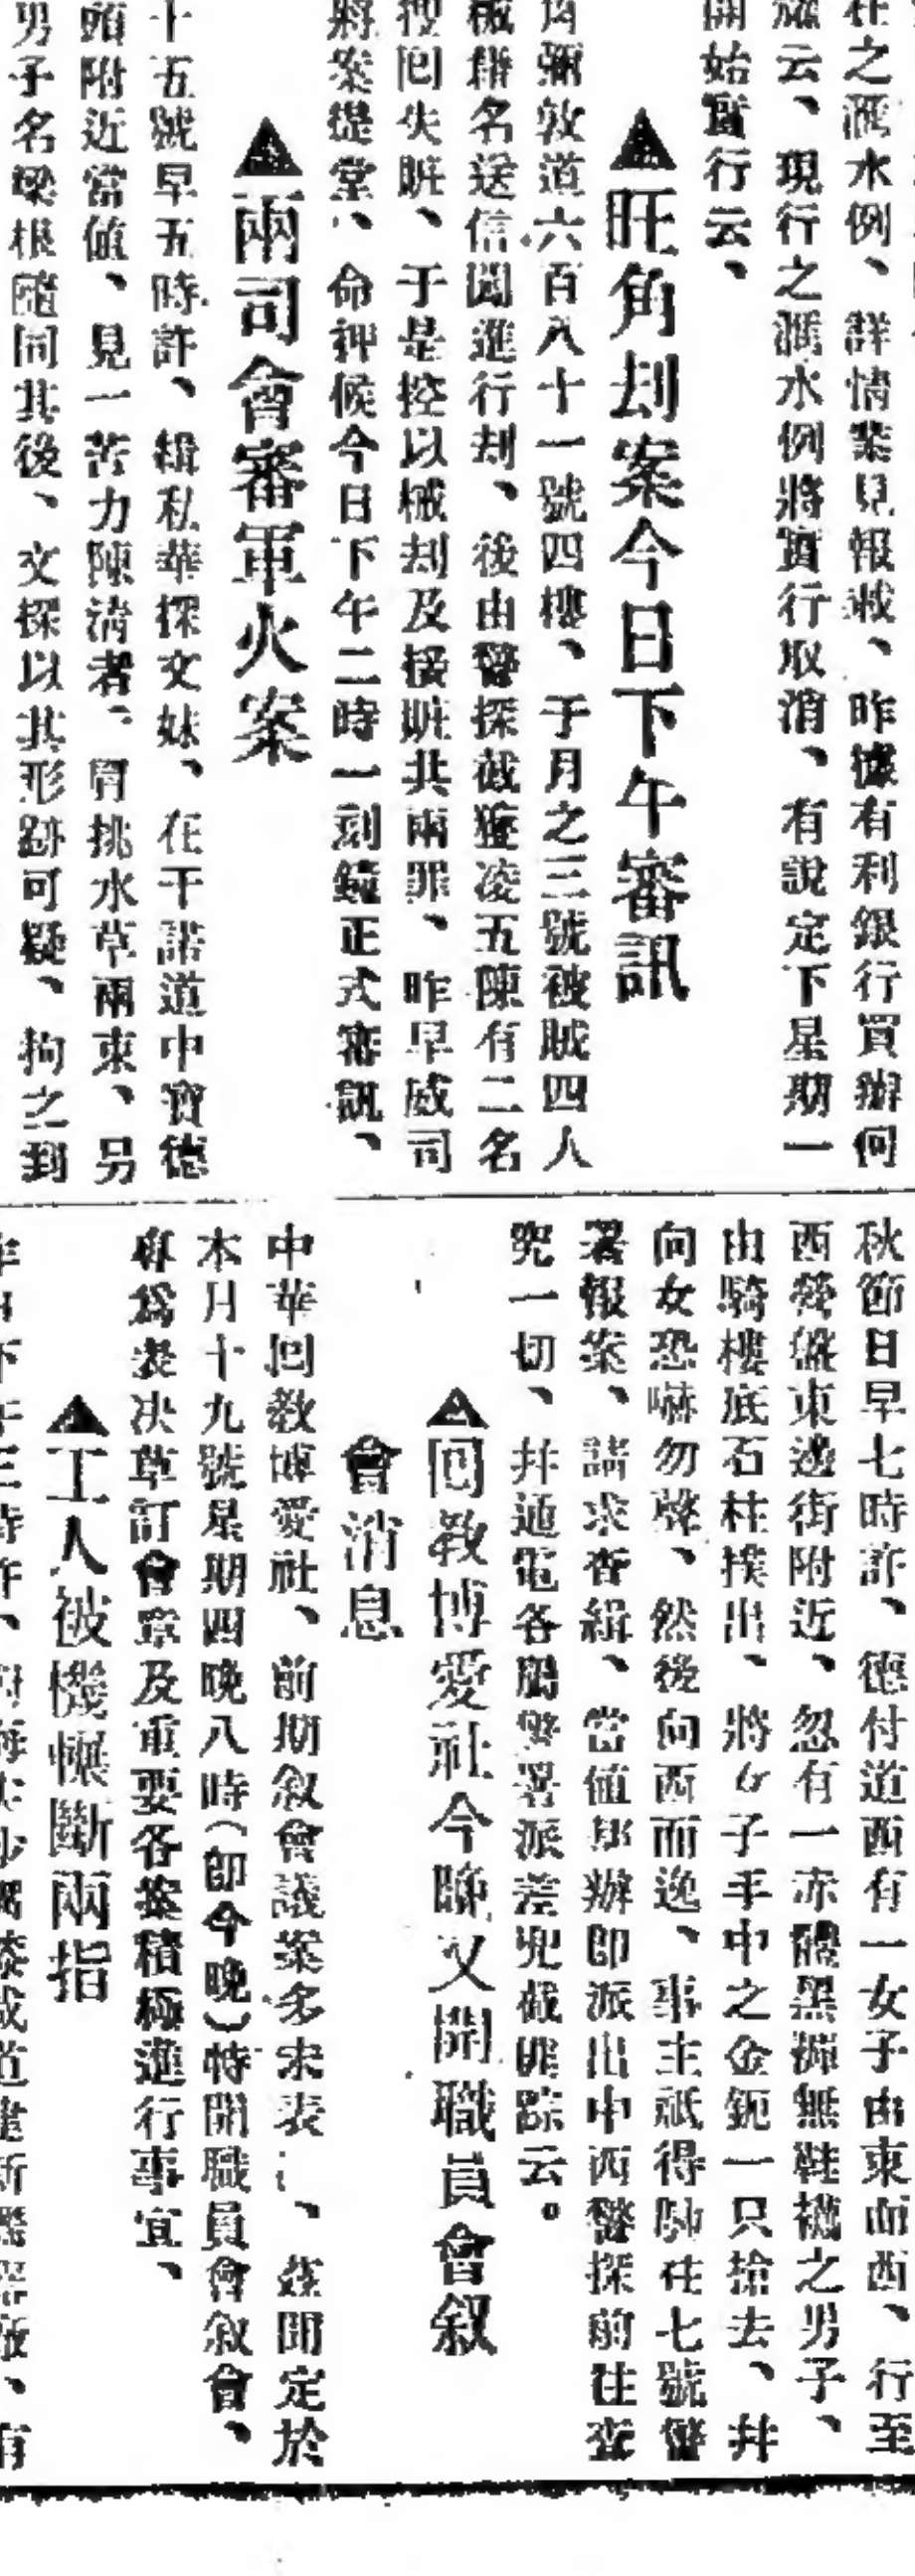 在之滙水例、詳情業見報載、昨據有利銀行買辦何
云、現行之滙水例將實行取消、有說定下星期一
開始實行云、
▲旺角刦案今日下午審訊
角彌敦道六百八十一號四樓、于月之三號被賊四人
械藉名送信闖進行刦、後由警探截獲凌五陳有二名
搜回失賍、于是控以械刦及接賍共兩罪、昨早威司
將案提堂、命押候今日下午二時一刻鐘正式審訊、
▲兩司會審軍火案
十五號早五時許、緝私華探文妹、在干諾道中寶德
頭附近當値、見一苦力陳淸者、肩挑水草兩束、另
男子名梁根隨同其後、文探以其形跡可疑、拘之到
秋節日早七時許、德付道西有一女子由東而西、行至
西營盤東邊街附近、忽有一赤體黑褲無鞋襪之男子、
由騎樓底石柱撲出、將女子手中之金鈪一只搶去、幷
向女恐嚇勿聲、然後向西而逸、事主祇得馳往七號警
署報案、請求查緝、當值帮辦即派出中西警探前往查
究一切、幷通電各屬警署派差兜截匪踪云。
▲回教博愛社今晚又開職員會叙
會消息
中華回教博愛社、前期叙會議案多未表、茲聞定於
本月十九號星期四晚八時(即今晚)特開職員會叙會、
專爲表决草訂會章及重要各案積極進行事宜、
▲工人被機輾斷兩指
昨日下午三時許、